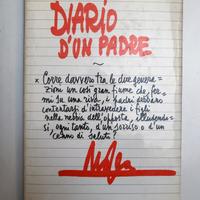 DIARIO
D'UN PADRE
~
× Corre davvero tra le due genera=
zioni un così gran fiume che, fer=
mi su una riva, i padri debbano
contentarsi d'intravedere i figli
nelle nebbie dell'opposta, illudendo=
si, ogni tanto, d'un sorriso o d'un
cenno di saluto?